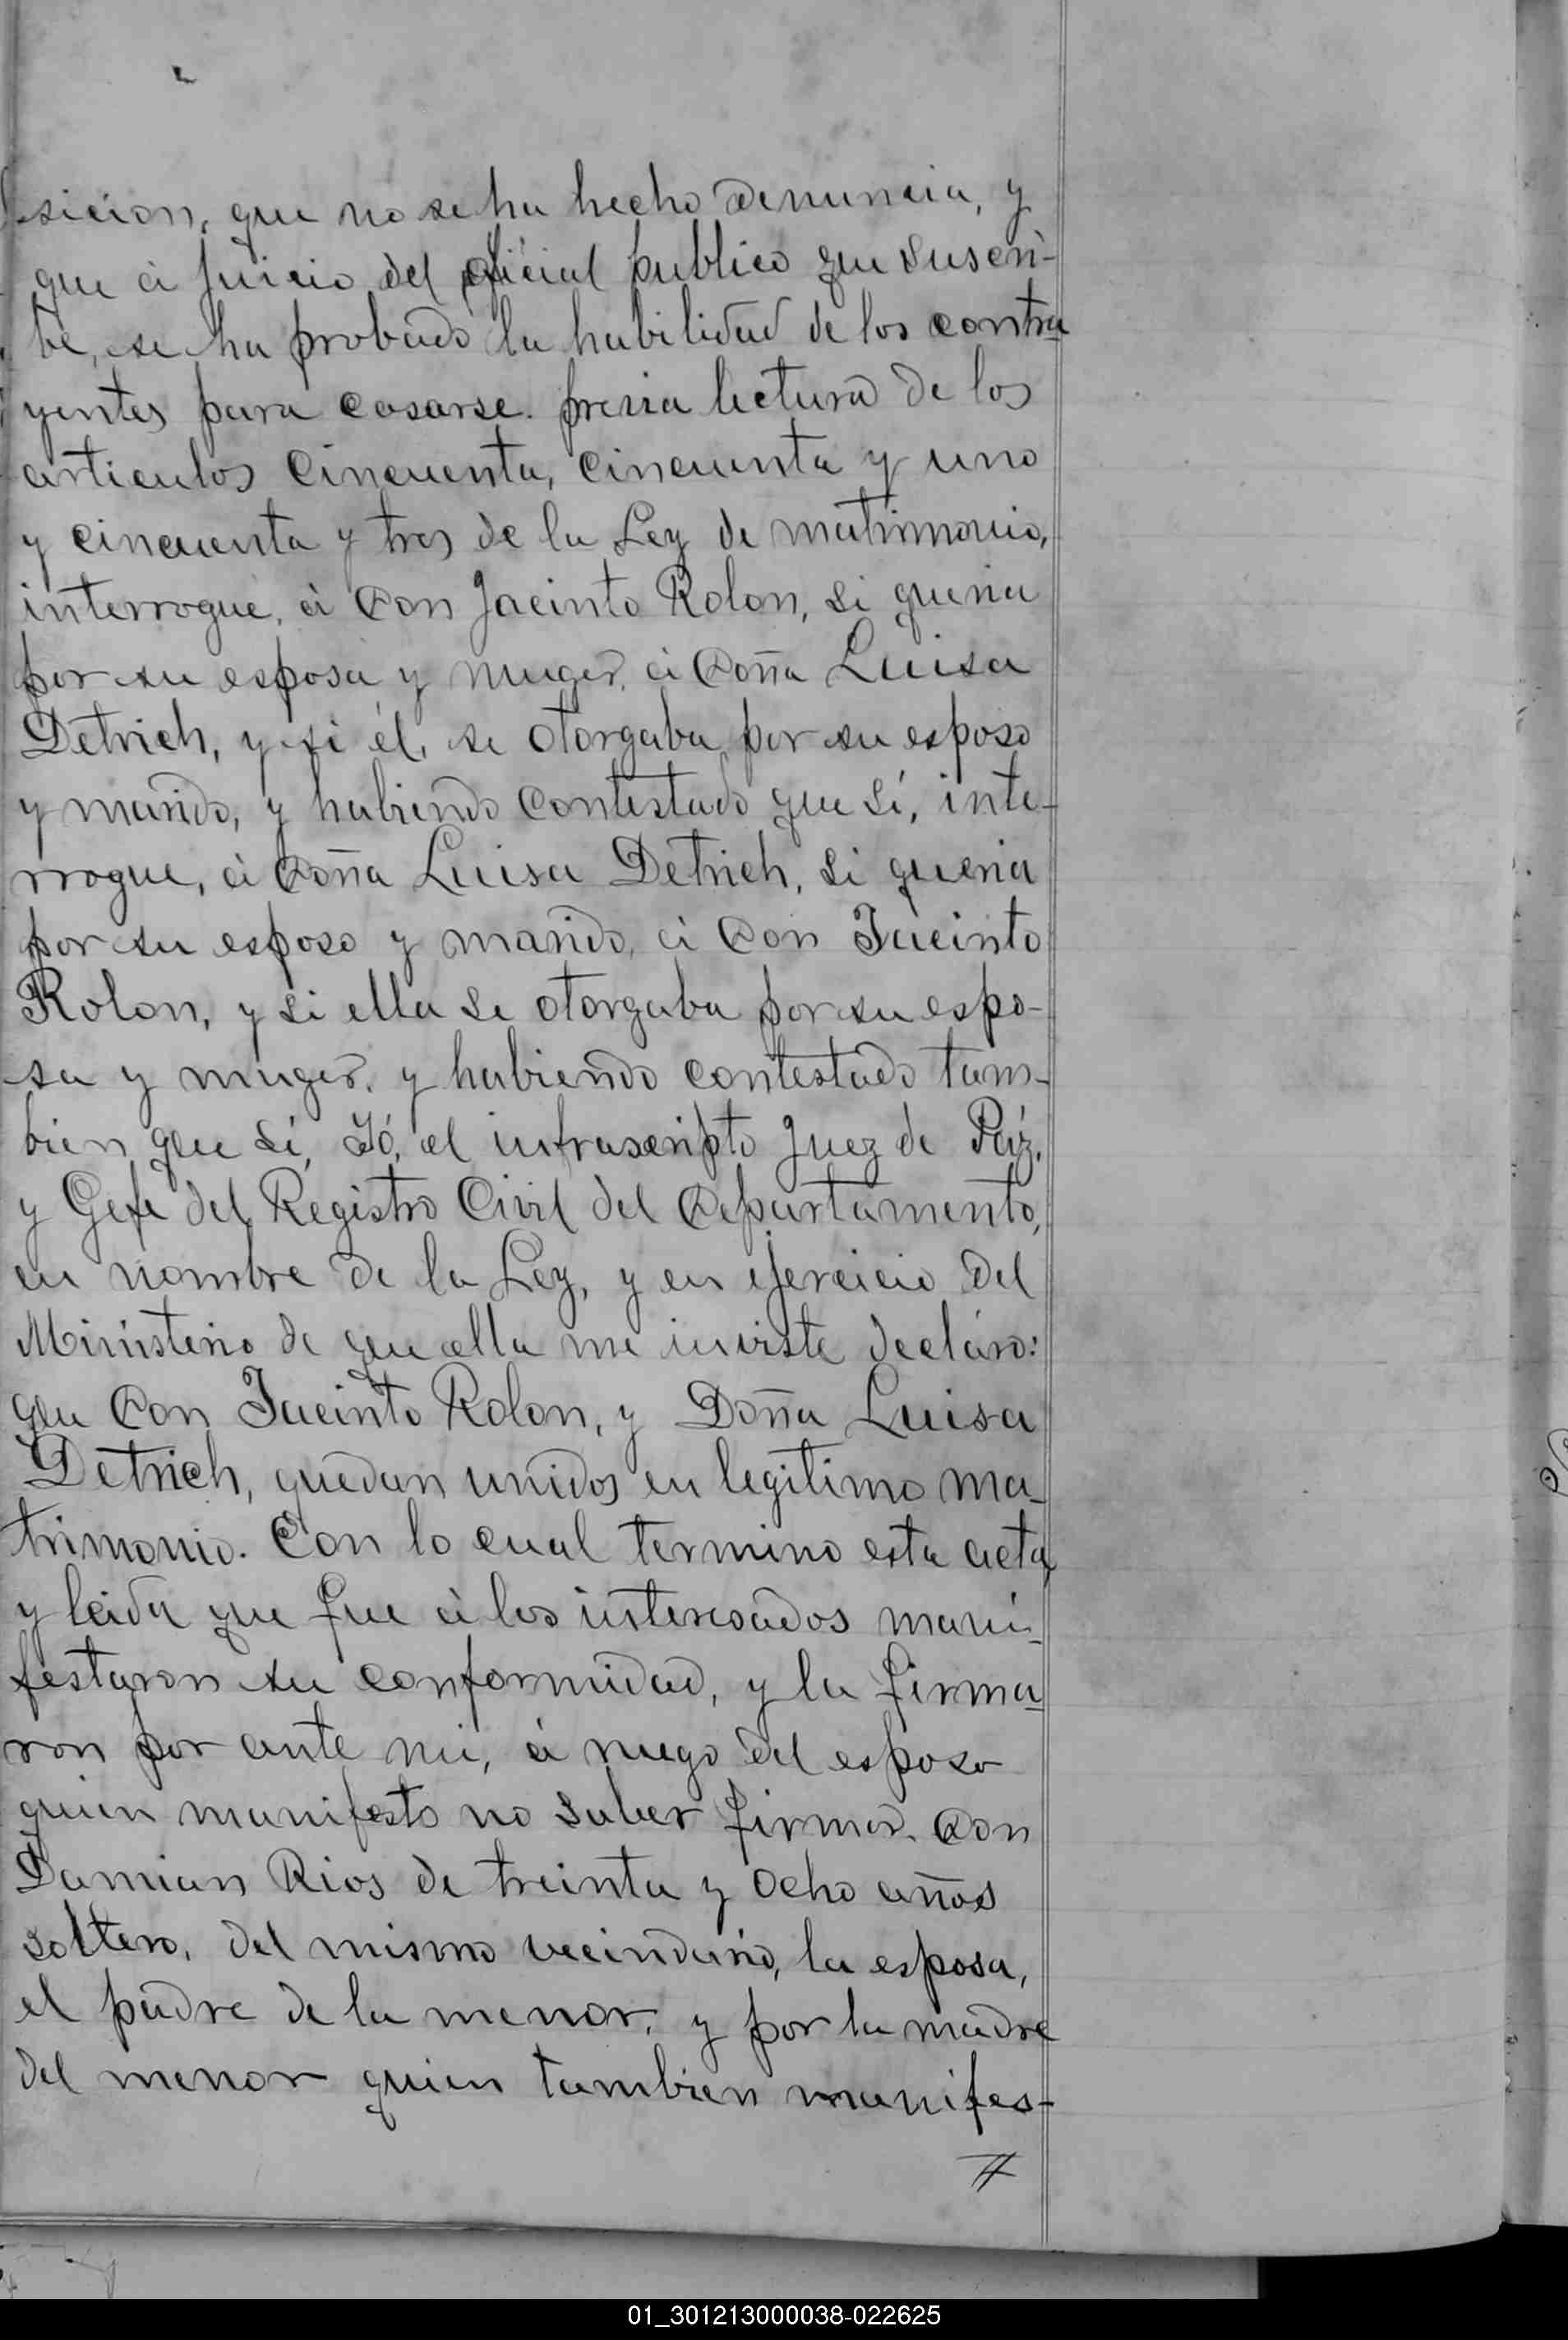 sicion, que no se ha hecho denuncia, y
que á juicio del oficial publico que suscri-
be, se ha probado la habilidad de los contra-
yentes para casarse. previa lectura de los
articulos cincuenta, cincuenta y uno
y cincuenta y tres de la Ley de matrimonio,
interrogué, á Don Jacinto Rolon, si queria
por su esposa y muger, á Doña Luisa
Detrich, y si él, se otorgaba por su esposo
y marido, y habiendo contestado que sí, inte-
rrogue, á Doña Luisa Detrich, si queria
por su esposo y marido, á Don Jacinto
Rolon, y si ella se otorgaba por su espo-
sa y muger, y habiendo contestado tam-
bien que sí, Yó, el infrascripto Juez de Páz,
y Gefe del Registro Civil del Departamento,
en nombre de la Ley, y en ejercicio del
Ministerio de que ella me inviste decláro:
que Don Jacinto Rolon, y Doña Luisa
Detrich, quedan unidos en legitimo ma-
trimonio. Con lo cual termino esta acta,
y leida que fue á los interesados mani-
festaron su conformidad, y la firma-
ron por ante mi, á ruego del esposo
quien manifesto no saber firmar, Don
Damian Rios de treinta y ocho años
soltero, del mismo vecindario, la esposa,
el padre de la menor, y por la madre
del menor quien tambien manifes-
01_301213000038-022625